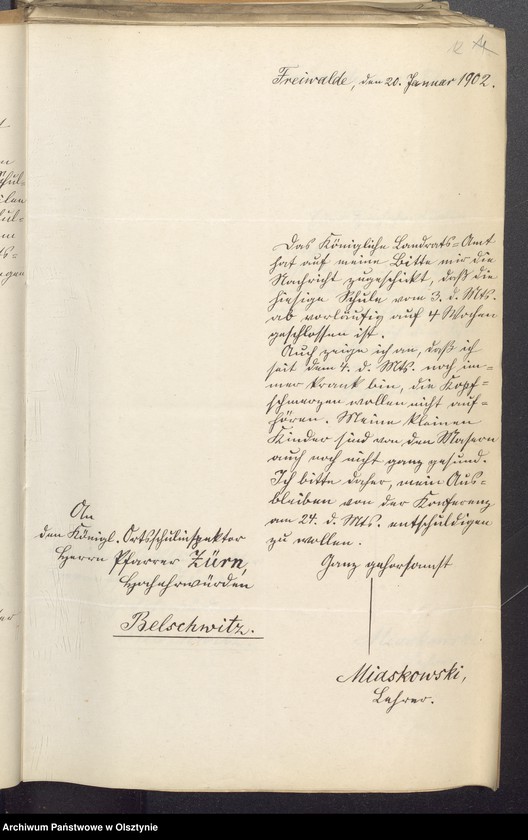 Freiwalde, den 20. Januar 1902.
Das Königliche Landrats-Amt
hat auf meine Bitte mir die
Nachricht zugeschickt, daß die
hiesige Schule vom 3. d. Mts.
ab vorläufig auf 4 Wochen
geschlossen ist.
Auch zeige ich an, daß ich
seit dem 4. d. Mts. noch im-
mer krank bin, die Kopf-
schmerzen wollen nicht auf-
hören. Meine kleinen
Kinder sind von den Masern
auch noch nicht ganz gesund.
Ich bitte daher, mein Aus-
bleiben von der Konferenz
am 24. d. Mts. entschuldigen
zu wollen.
Ganz gehorsamst
Miaskowski,
Lehrer.
An
den Königl. Ortsschulinspektor
Herrn Pfarrer Zürn,
Hochehrwürden
Belschwitz.
Archiwum Państwowe w Olsztynie